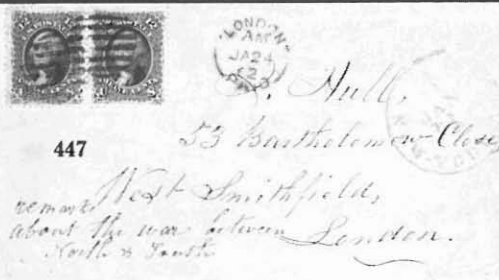 LONDON
AM
JA 24
62
PAID
Hull,
53 Bartholomew Close
447
West Smithfield,
remarks
about the war between London.
North & South